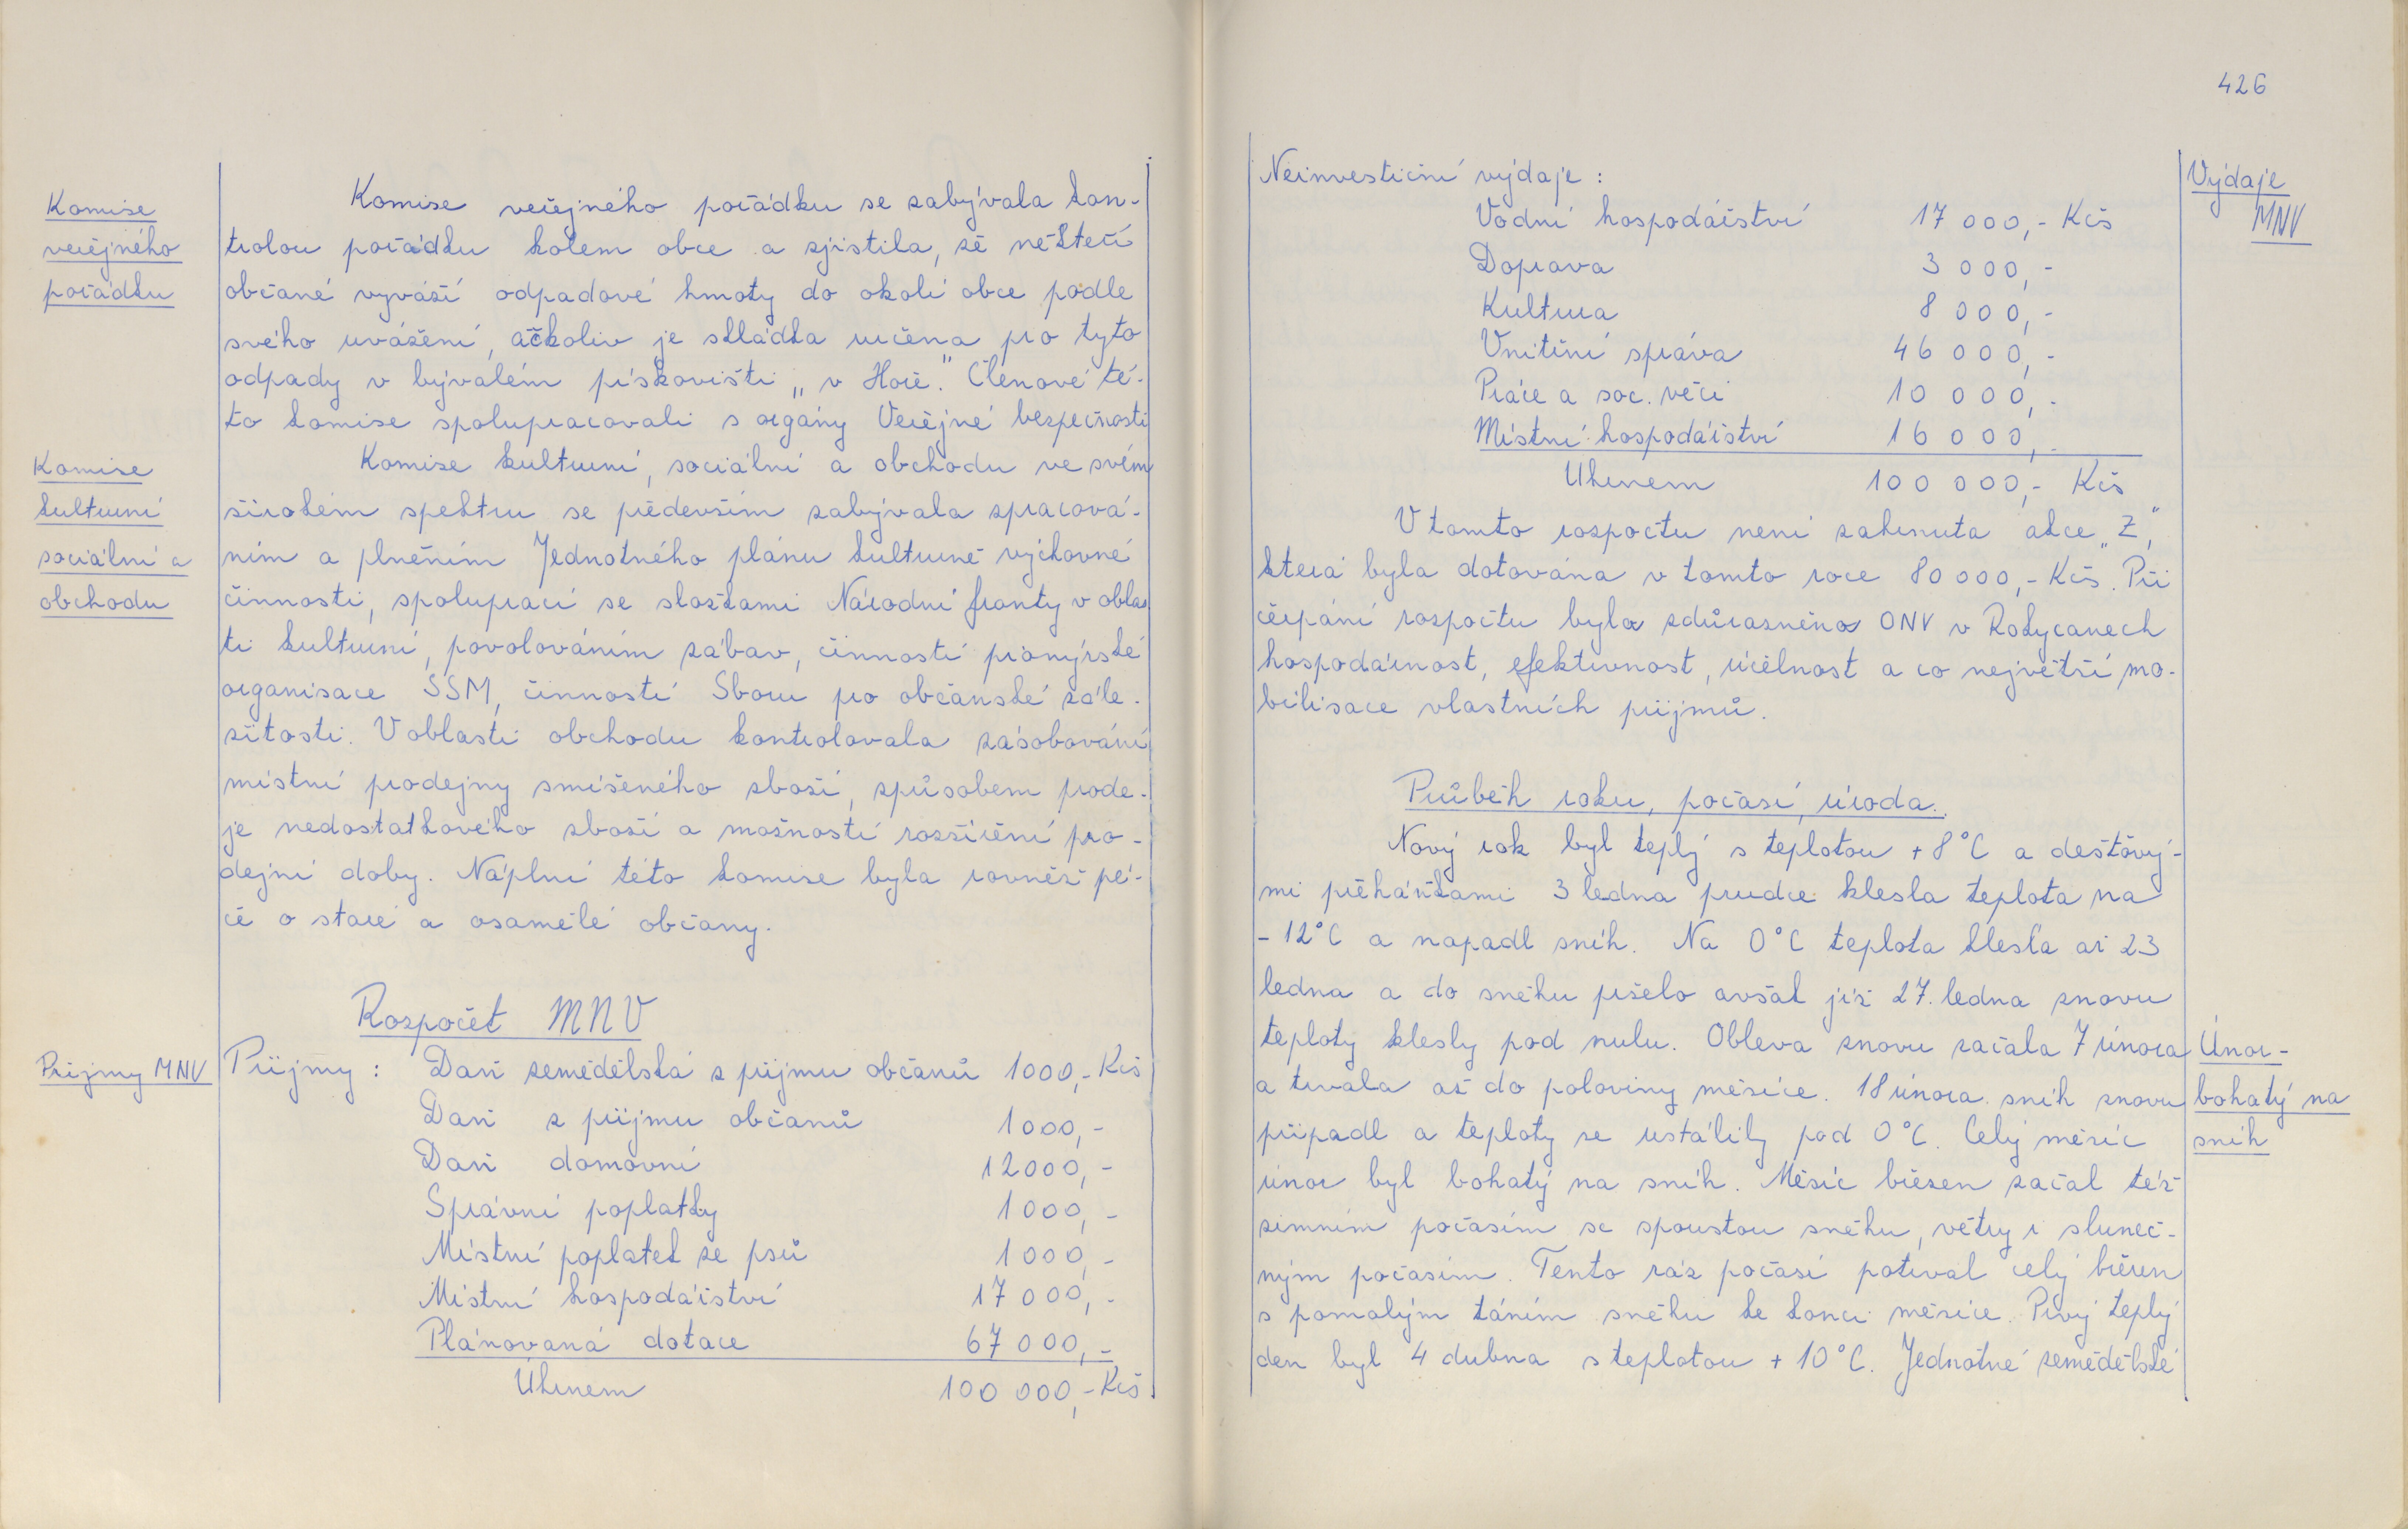 Komise
veřejného
pořádku
Komise veřejného pořádku se zabývala kon-
trolou pořádku kolem obce a zjistila, že někteří
občané vyváží odpadové hmoty do okolí obce podle
svého uvážení, ačkoliv je skládka určena pro tyto
odpady v bývalém pískovišti „v Hoře." Členové té-
to komise spolupracovali s orgány Veřejné bezpečnosti
Komise
kulturní
sociální a
obchodu
Komise kulturní, sociální a obchodu ve svém
širokém spektru se především zabývala zpracová-
ním a plněním Jednotného plánu kulturně výchovné
činnosti, spoluprací se složkami Národní fronty v oblas
ti kulturní, povolováním zábav, činností pionýrské
organisace SSM, činností Sboru pro občanské zále-
žitosti. V oblasti obchodu kontrolovala zásobování
místní prodejny smíšeného zboží, způsobem prode-
je nedostatkového zboží a možností rozšíření pro-
dejní doby. Náplní této komise byla rovněž pé-
če o staré a osamělé občany.
Rozpočet MNV
Příjmy MNV
Příjmy : Daň zemědělská z příjmu občanů 1000,- Kčs
Daň z příjmu občanů 1000,-
Daň domovní 12000,-
Správní poplatky 1000,-
Místní poplatek ze psů 1000,-
Místní hospodářství 17000,-
Plánovaná dotace 67000,-
Úhrnem 100 000,- Kčs
426
Výdaje
MNV
Neinvestiční výdaje :
Vodní hospodářství 17 000,- Kčs
Doprava 3 000,-
Kultura 8 000,-
Vnitřní správa 46 000,-
Práce a soc. věci 10 000,-
Místní hospodářství 16 000,-
Úhrnem 100 000,- Kčs
V tomto rozpočtu není zahrnuta akce „Z",
která byla dotována v tomto roce 80 000,- Kčs. Při
čerpání rozpočtu byla zdůrazněna ONV v Rokycanech
hospodárnost, efektivnost, účelnost a co největší mo-
bilisace vlastních příjmů.
Průběh roku, počasí, úroda.
Nový rok byl teplý s teplotou +8°C a dešťový-
mi přeháňkami 3 ledna prudce klesla teplota na
- 12°C a napadl sníh. Na 0°C teplota klesla až 23
ledna a do sněhu pršelo avšak již 27. ledna znovu
teploty klesly pod nulu. Obleva znovu začala 7 února
a trvala až do poloviny měsíce. 18 února sníh znovu
připadl a teploty se ustálily pod 0°C. Celý měsíc
únor byl bohatý na sníh. Měsíc březen začal též
zimním počasím se spoustou sněhu, větry i sluneč-
ným počasím. Tento ráz počasí potrval celý březen
s pomalým táním sněhu ke konci měsíce. Prvý teplý
den byl 4 dubna s teplotou + 10°C. Jednotné zemědělské
Únor -
bohatý na
sníh